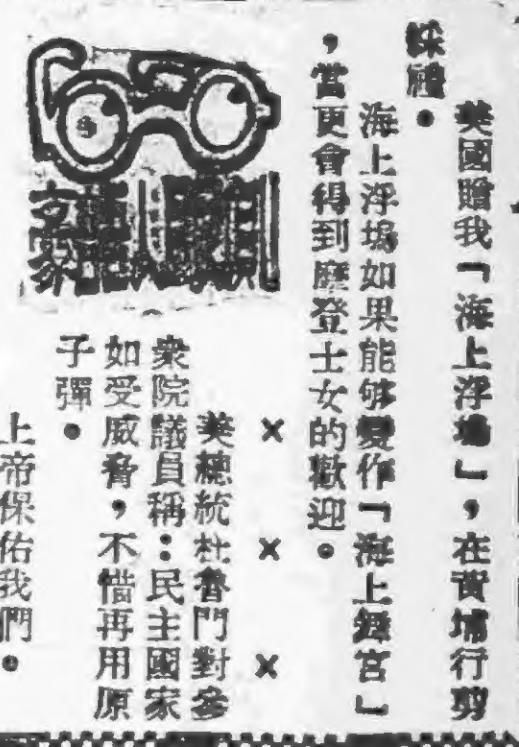 美國贈我「海上浮塢」，在黃埔行剪
綵禮。
海上浮塢如果能够變作「海上舞宮」
，當更會得到摩登士女的歡迎。
× × ×
美總統杜魯門對參
衆院議員稱：民主國家
如受威脅，不惜再用原
子彈。
上帝保佑我們。